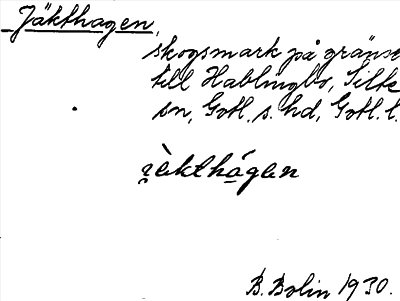 Jäkthagen,
skogsmark på gräns
till Hablingbo, Silte
sn, Gotl. s. hd, Gotl. l.
i̯èkthágen
B. Bolin 1930.